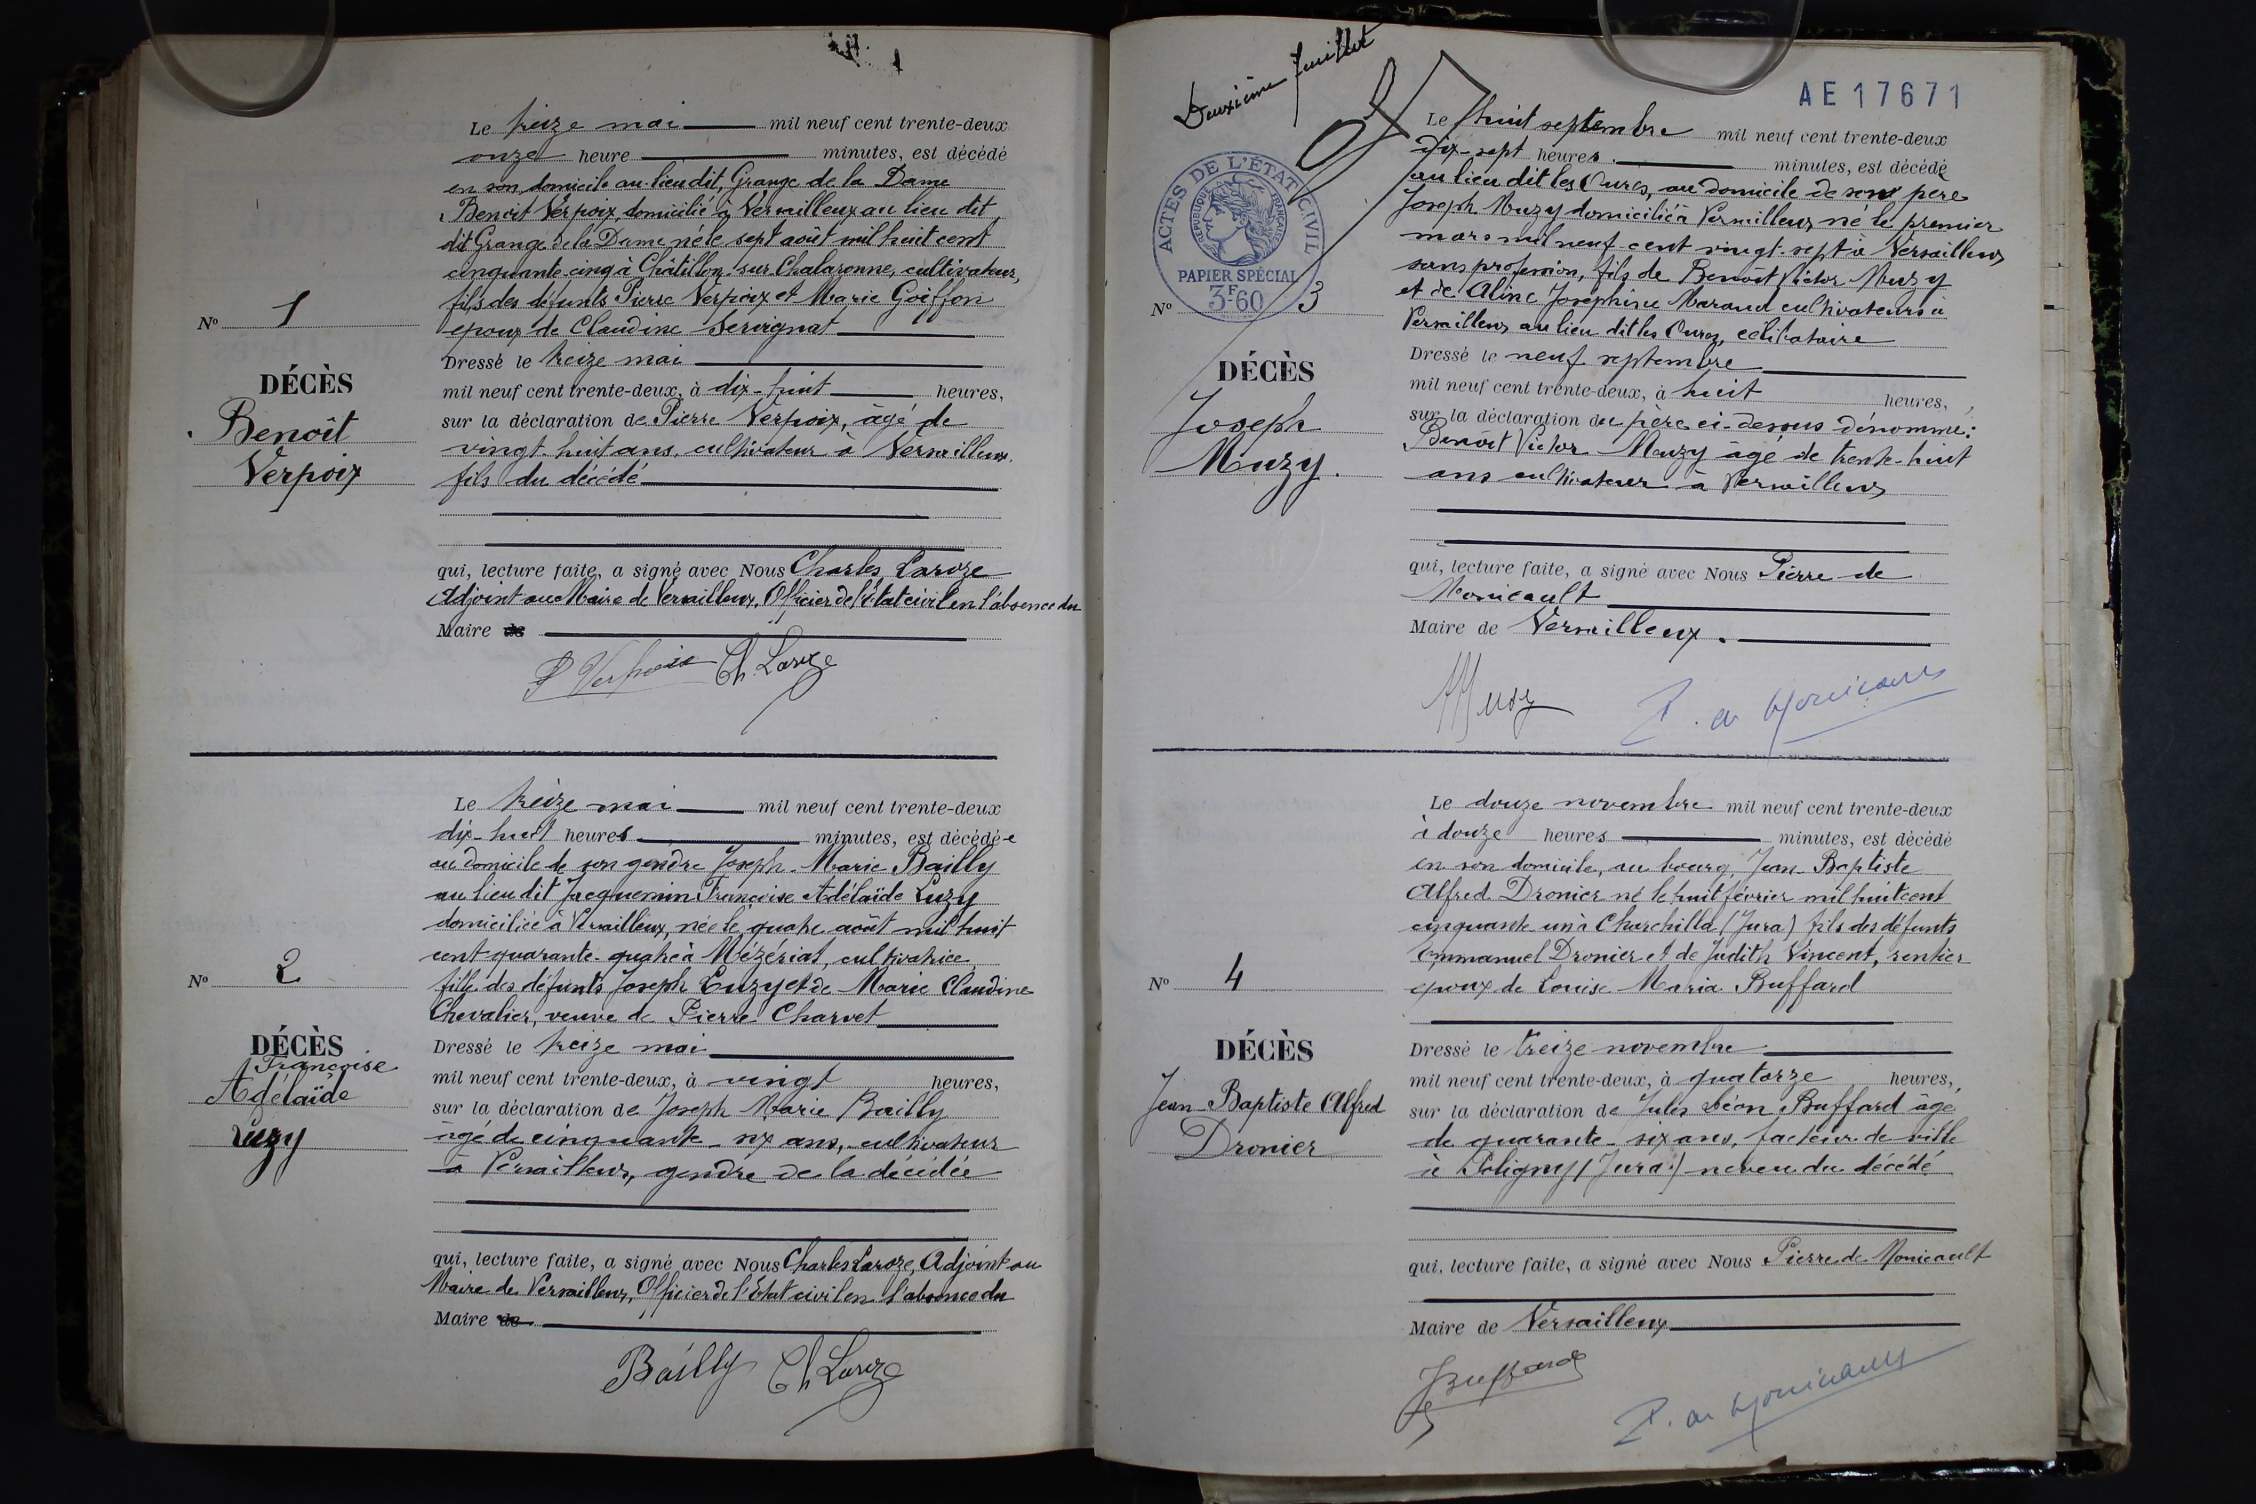 Le treize mai mil neuf cent trente-deux
onze heure minutes, est décédé
en son domicile au lieu dit, Grange de la Dame
Benoit Verpoix, domicilié à Versailleux au lieu dit,
dit Grange de la Dame né le sept août mil huit cent
cinquante-cinq à Châtillon sur Chalaronne, cultivateur,
fils des défunts Pierre Verpoix et Marie Goiffon
N° 1
époux de Claudine Servignat
Dressé le treize mai
DÉCÈS
mil neuf cent trente-deux, à dix-huit heures,
Benoît
sur la déclaration de Pierre Verpoix, âgé de
vingt-huit ans, cultivateur à Versailleux,
Verpoix
fils du décédé
qui, lecture faite, a signé avec Nous Charles Laroze
Adjoint au Maire de Versailleux, Officier de l'état civil en l'absence du
Maire de
P Verpoix Ch Laroze
Le treize mai mil neuf cent trente-deux
dix-huit heures minutes, est décédée
au domicile de son gendre Joseph-Marie Bailly
au lieu dit Jacquemin Françoise Adélaïde Luzy
domiciliée à Versailleux, née le quatre août mil huit
cent quarante-quatre à Mézériat, cultivatrice
N° 2
fille des défunts Joseph Luzy et de Marie Claudine
Chevalier, veuve de Pierre Charvet
DÉCÈS
Dressé le treize mai
Françoise
mil neuf cent trente-deux, à vingt heures,
Adélaïde
sur la déclaration de Joseph Marie Bailly
Luzy
âgé de cinquante-six ans, cultivateur
à Versailleux, gendre de la décédée
qui, lecture faite, a signé avec Nous Charles Laroze, Adjoint au
Maire de Versailleux, Officier de l'Etat civil en l'absence du
Maire de
Bailly Ch Laroze
Deuxième feuillet
AE17671
ACTES DE L'ÉTAT CIVIL
RÉPUBLIQUE FRANÇAISE
PAPIER SPÉCIAL
3F-60
Le huit septembre mil neuf cent trente-deux
dix-sept heures minutes, est décédé
au lieu dit les Oures, au domicile de son père
Joseph Muzy domicilié à Versailleux né le premier
mars mil neuf cent vingt-sept à Versailleux
sans profession, fils de Benoît Victor Muzy
et de Aline Joséphine Maraud cultivateurs à
N° 3
Versailleux au lieu dit les Oures, célibataire
Dressé le neuf septembre
DÉCÈS
mil neuf cent trente-deux, à huit heures,
Joseph
sur la déclaration du père ci-dessus dénommé:
Benoît Victor Muzy âgé de trente-huit
Muzy.
ans cultivateur à Versailleux
qui, lecture faite, a signé avec Nous Pierre de
Monicault
Maire de Versailleux.
Muzy P. de Monicault
Le douze novembre mil neuf cent trente-deux
à douze heures minutes, est décédé
en son domicile, au bourg, Jean-Baptiste
Alfred Dronier né le huit février mil huit cent
cinquante un à Charchilla (Jura) fils des défunts
Emmanuel Dronier et de Judith Vincent, rentier
N° 4
époux de Louise Maria Buffard
DÉCÈS
Dressé le treize novembre
mil neuf cent trente-deux, à quatorze heures,
Jean-Baptiste Alfred
sur la déclaration de Jules Léon Buffard âgé
Dronier
de quarante-six ans, facteur de ville
à Poligny (Jura) neveu du décédé
qui, lecture faite, a signé avec Nous Pierre de Monicault
Maire de Versailleux
JBuffard P. de Monicault